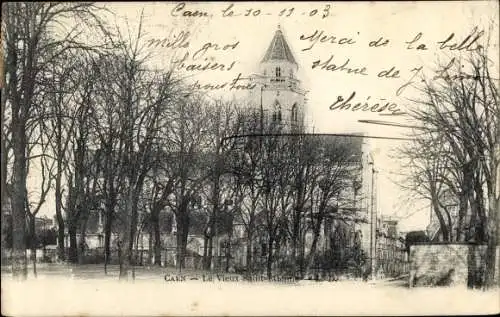 Caen le 10-11-03
Mille gros
baisers
pour tous
Merci de la belle
statue de
Thérèse
CAEN — Le Vieux Saint-Etienne